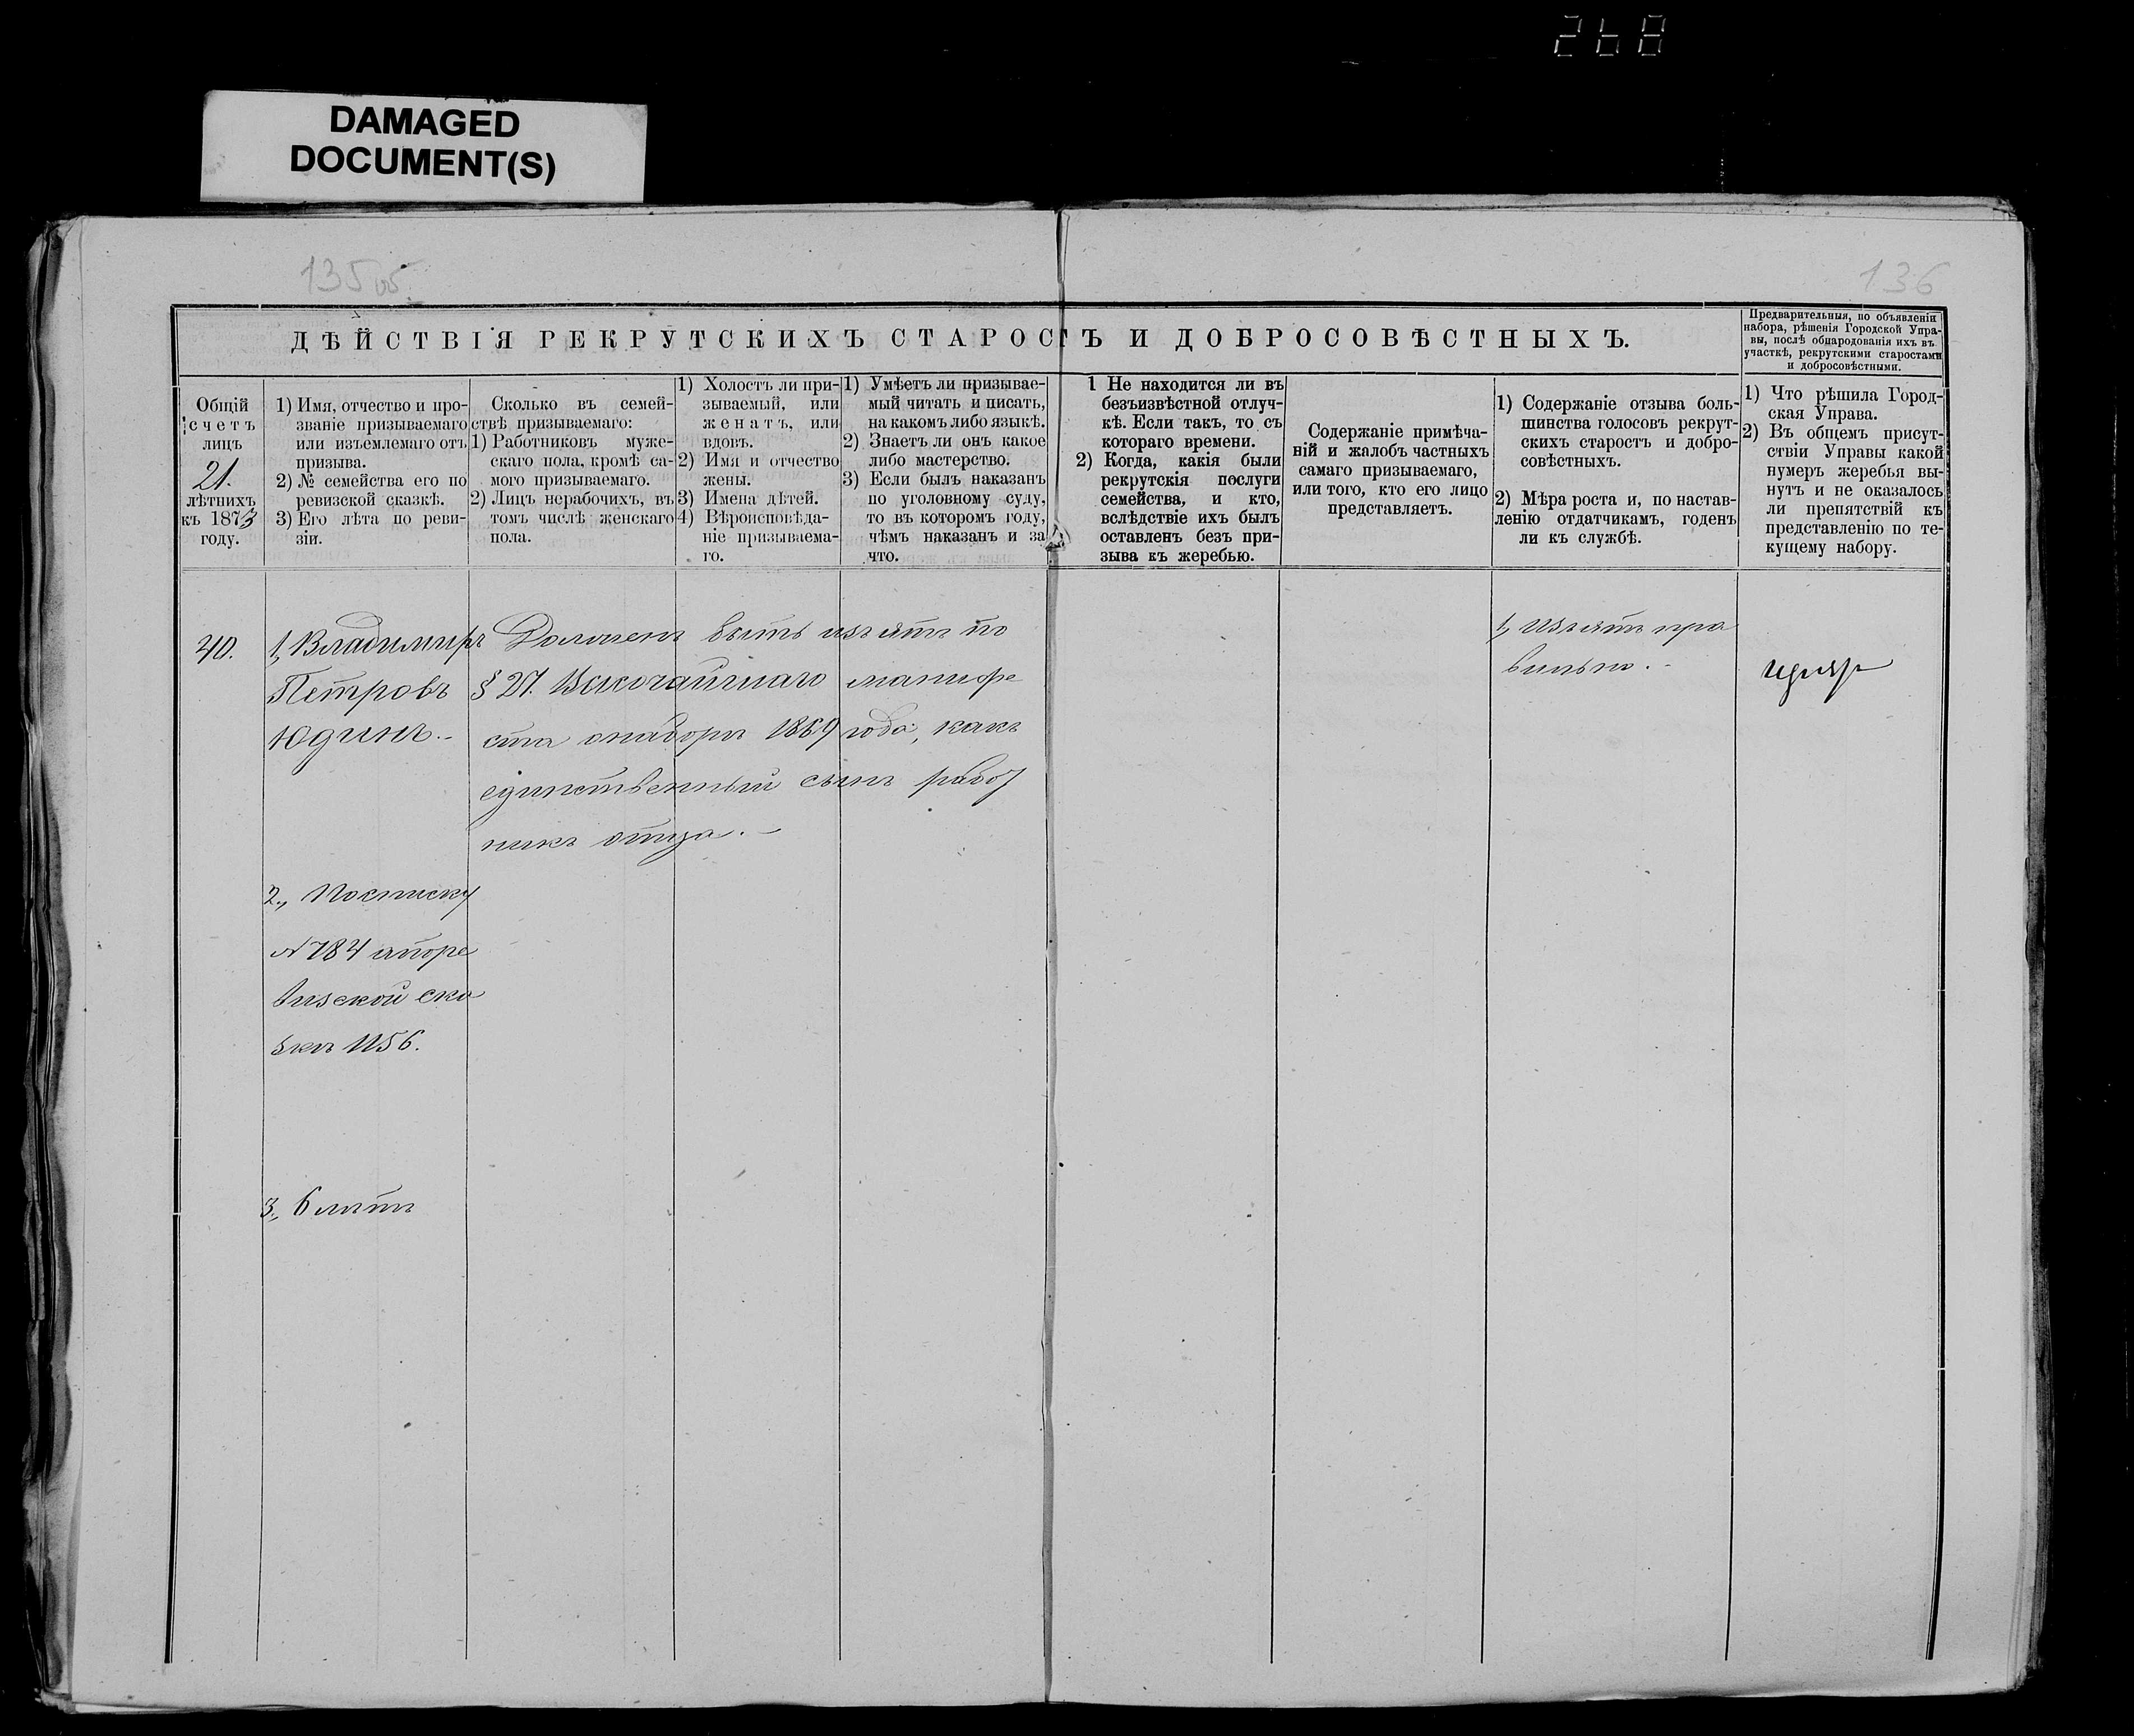 268
DAMAGED
DOCUMENT(S)
135об
136
ДѢЙСТВІЯ РЕКРУТСКИХЪ СТАРОСТЪ И ДОБРОСОВѢСТНЫХЪ.
Предварительныя, по объявленіи
набора, рѣшенія Городской Упра-
вы, послѣ обнародованія ихъ въ
участкѣ, рекрутскими старостами
и добросовѣстными.
Общій
счетъ
лицъ
21.
лѣтнихъ
къ 1873
году.
1) Имя, отчество и про-
званіе призываемаго
или изъемлемаго отъ
призыва.
2) № семейства его по
ревизской сказкѣ.
3) Его лѣта по реви-
зіи.
Сколько въ семей-
ствѣ призываемаго:
1) Работниковъ муже-
скаго пола, кромѣ са-
мого призываемаго.
2) Лицъ нерабочихъ, въ
томъ числѣ женскаго
пола.
1) Холостъ ли при-
зываемый, или
женатъ, или
вдовъ.
2) Имя и отчество
жены.
3) Имена дѣтей.
4) Вѣроисповѣда-
ніе призываема-
го.
1) Умѣетъ ли призывае-
мый читать и писать,
на какомъ либо языкѣ.
2) Знаетъ ли онъ какое
либо мастерство.
3) Если былъ наказанъ
по уголовному суду,
то въ которомъ году,
чѣмъ наказанъ и за
что.
1 Не находится ли въ
безъизвѣстной отлуч-
кѣ. Если такъ, то съ
котораго времени.
2) Когда, какія были
рекрутскія послуги
семейства, и кто,
вслѣдствіе ихъ былъ
оставленъ безъ при-
зыва къ жеребью.
Содержаніе примѣча-
ній и жалобъ частныхъ
самаго призываемаго,
или того, кто его лицо
представляетъ.
1) Содержаніе отзыва боль-
шинства голосовъ рекрут-
скихъ старостъ и добро-
совѣстныхъ.
2) Мѣра роста и, по настав-
ленію отдатчикамъ, годенъ
ли къ службѣ.
1) Что рѣшила Город-
ская Управа.
2) Въ общемъ присут-
ствіи Управы какой
нумеръ жеребья вы-
нутъ и не оказалось
ли препятствій къ
представленію по те-
кущему набору.
40.
1, Владимиръ
Петровъ
Юдинъ.-
Долженъ быть изъятъ по
§ 27. Высочайшаго манифе
ста онаборѣ 1869 года, какъ
единственный сынъ работ
никъ отца.-
1, Изъятъ пра
вильно.-
2., Посписку
№ 784 апоре
визской ска
зкѣ 1156.
3., 6 лѣтъ